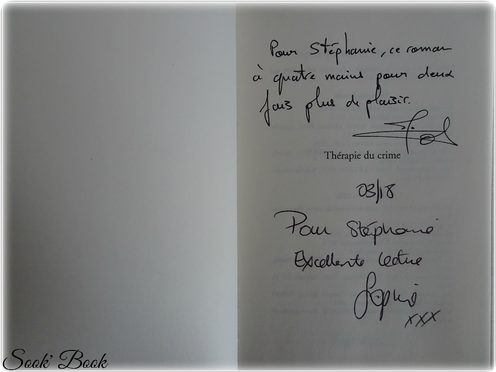 Pour Stéphanie, ce roman
à quatre mains pour deux
fois plus de plaisir.
Thérapie du crime
03/18
Pour Stéphanie
Excellente lecture
Sophie
xxx
Sook' Book